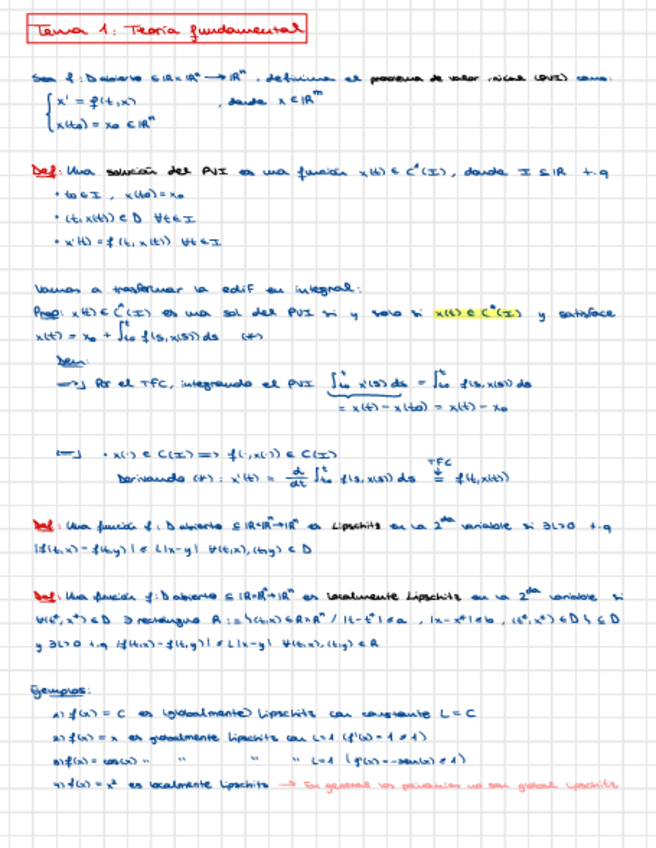 Tema 1: Teoría fundamental
Sea f: D abierto ⊆ ℝ×ℝⁿ → ℝⁿ, definimos el problema de valor inicial (PVI) como:
{ x' = f(t,x) , donde x ∈ ℝⁿ
x(t₀) = x₀ ∈ ℝⁿ
Def: Una solución del PVI es una función x(t) ∈ C¹(I), donde I ⊆ ℝ t.q
• t₀ ∈ I, x(t₀) = x₀
• (t, x(t)) ∈ D ∀t ∈ I
• x'(t) = f(t, x(t)) ∀t ∈ I
Vamos a trasformar la edif en integral:
Prop: x(t) ∈ C¹(I) es una sol del PVI si y solo si x(t) ∈ C⁰(I) y satisface
x(t) = x₀ + ∫_{t₀}^{t} f(s, x(s)) ds (*)
Dem:
⟹] Por el TFC, integrando el PVI ∫_{t₀}^{t} x'(s) ds = ∫_{t₀}^{t} f(s, x(s)) ds
= x(t) - x(t₀) = x(t) - x₀
⟸] • x(·) ∈ C(I) ⟹ f(·, x(·)) ∈ C(I)
Derivando (*): x'(t) = d/dt ∫_{t₀}^{t} f(s, x(s)) ds = f(t, x(t))
TFC ↓
Def: Una función f: D abierto ⊆ ℝ×ℝⁿ→ℝⁿ es Lipschitz en la 2ᵈᵃ variable si ∃L>0 t.q
|f(t,x) - f(t,y)| ≤ L|x-y| ∀(t,x), (t,y) ∈ D
Def: Una función f: D abierto ⊆ ℝ×ℝⁿ→ℝⁿ es localmente Lipschitz en la 2ᵈᵃ variable si
∀(t*, x*) ∈ D ∃ rectángulo R := {(t,x) ∈ ℝ×ℝⁿ / |t-t*| ≤ a, |x-x*| ≤ b, (t*, x*) ∈ D} ⊆ D
y ∃L>0 t.q |f(t,x) - f(t,y)| ≤ L|x-y| ∀(t,x), (t,y) ∈ R
Ejemplos:
1) f(x) = C es (globalmente) Lipschitz con constante L = C
2) f(x) = x es globalmente Lipschitz con L=1 (f'(x) = 1 ≤ 1)
3) f(x) = cos(x) " " " " L=1 (f'(x) = -sen(x) ≤ 1)
4) f(x) = x² es localmente Lipschitz → En general los polinomios no son global Lipschitz